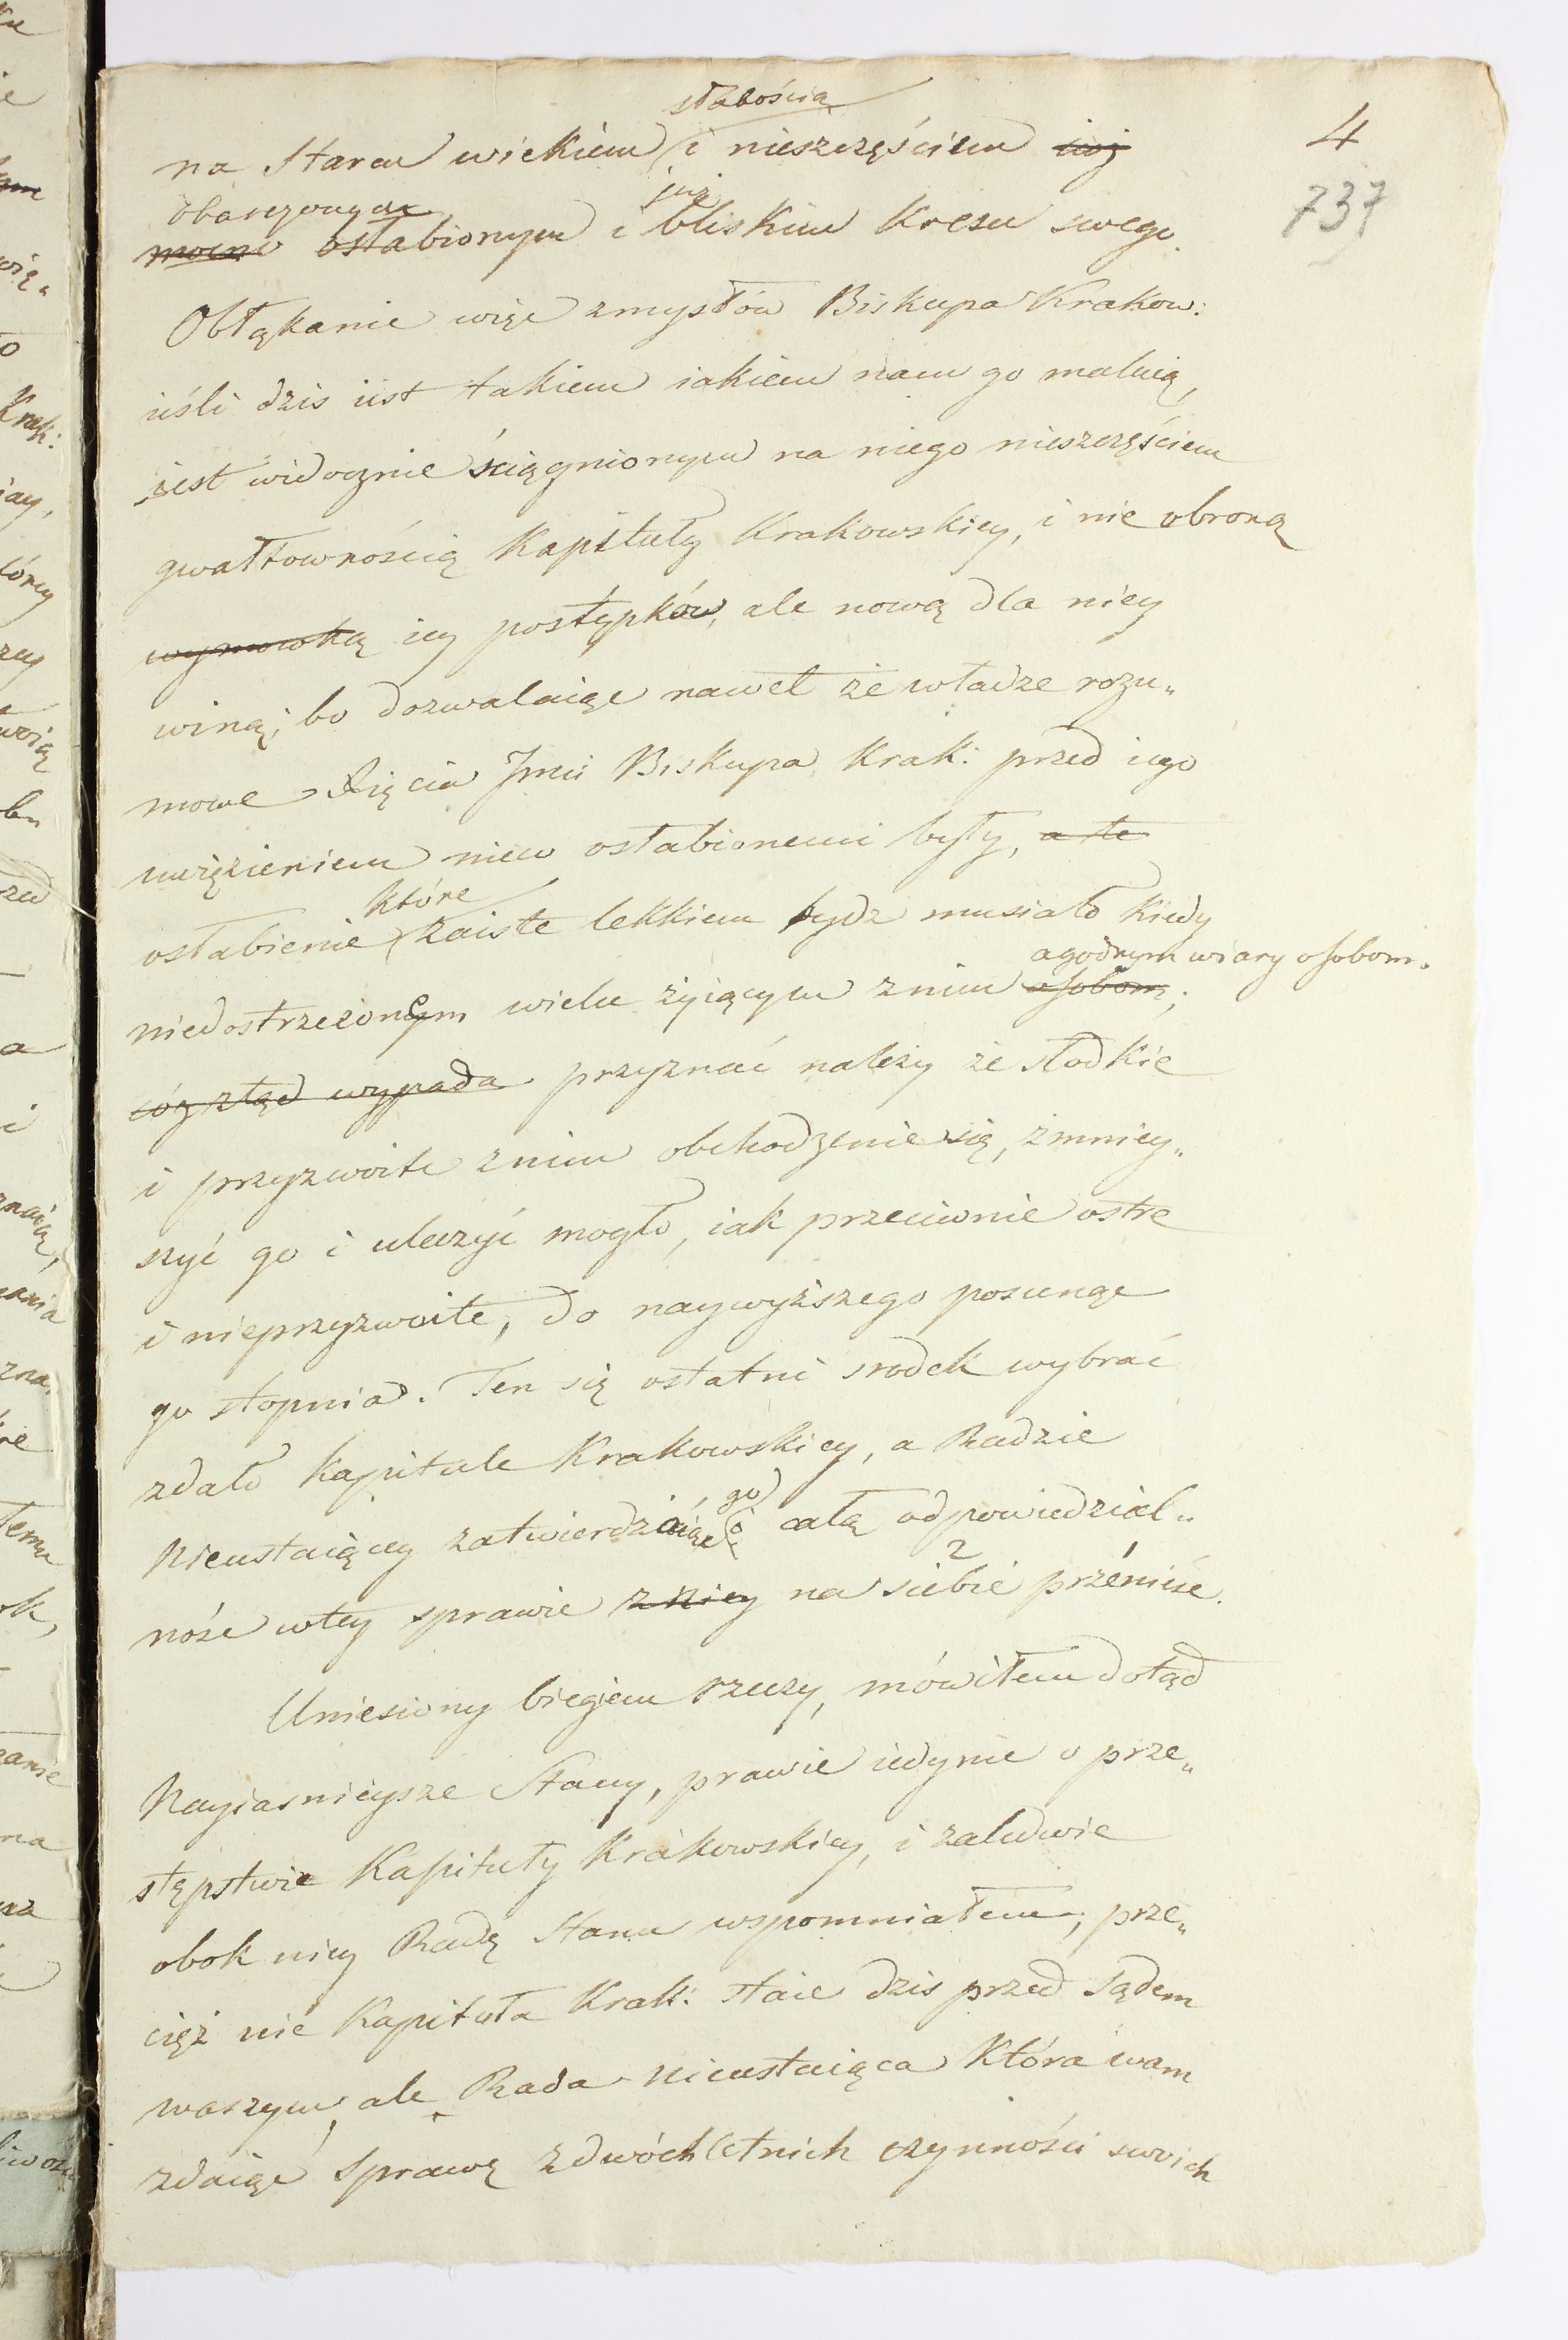 4
737
słabością
na Starca wiekiem i nieszczęściem iuż
obarczonym już
mocno osłabionym i bliskim Kresu swego.
Obłąkanie więc zmysłów Biskupa Krakow:
ieśli dzis iest takiem iakiem nam go maluią,
jest widocznie ściągnionym na niego nieszczęściem
gwałtownością Kapituły Krakowskiey, i nie obroną
wymowką iey postępków, ale nową dla niey
winą; bo dozwalaiąc nawet że władze rozu„
mowe Xięcia Jmci Biskupa Krak: przed iego
uwięzieniem nieco osłabionemi były, a te
które
osłabienie zaiste lekkiem bydz musiało kiedy
zgodnym wiary osobom.
niedostrzeżonem wielu żyiącym znim osobom;
cóz ztąd wypada przyznać należy że słodkie
i przyzwoite znim obchodzenie się, zmniey„
szyć go i uleczyć mogło, iak przeciwnie ostre
i nieprzyzwoite, do naywyższego posunąc
go stopnia. Ten się ostatni srodek wybrać
zdało Kapitule Krakowskiey, a Radzie
go
Nieustaiącey zatwierdzaiąc i całą odpowiedzial„
2 1
ność wtey sprawie z niey na siebie przenieśc.
Uniesiony biegiem rzeczy, mówiłem dotąd
Nayiasnieysze Stany, prawie iedynie o prze„
stępstwie Kapituły Krakowskiey, i zaledwie
obok niey Radę Stanu wspomniałem, prze„
cięż nie Kapituła Krak: staie dzis przed Sądem
waszym, ale Rada Nieustaiąca Która wam
zdaiąc Sprawę zdwóch letnich czynności swoich